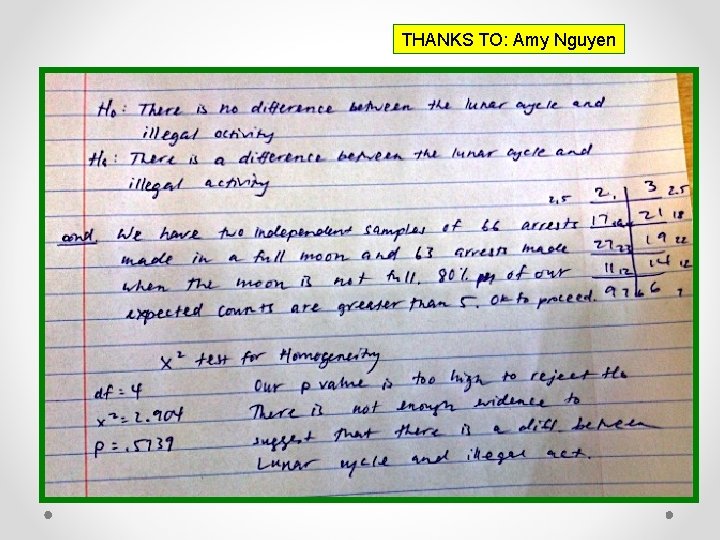 THANKS TO: Amy Nguyen
Ho: There is no difference between the lunar cycle and
illegal activity
Ha: There is a difference between the lunar cycle and
illegal activity
2.5 2. 3 2.5
cond. We have two independent samples of 66 arrests 17 21 18
made in a full moon and 63 arrests made 27 23 19 22
when the moon is not full. 80% of our 11 12 14 12
expected counts are greater than 5. OK to proceed. 9 6 6
X² test for Homogeneity
df = 4 Our p value is too high to reject Ho
x² = 2.904 There is not enough evidence to
p = .5739 suggest that there is a diff between
Lunar cycle and illegal act.